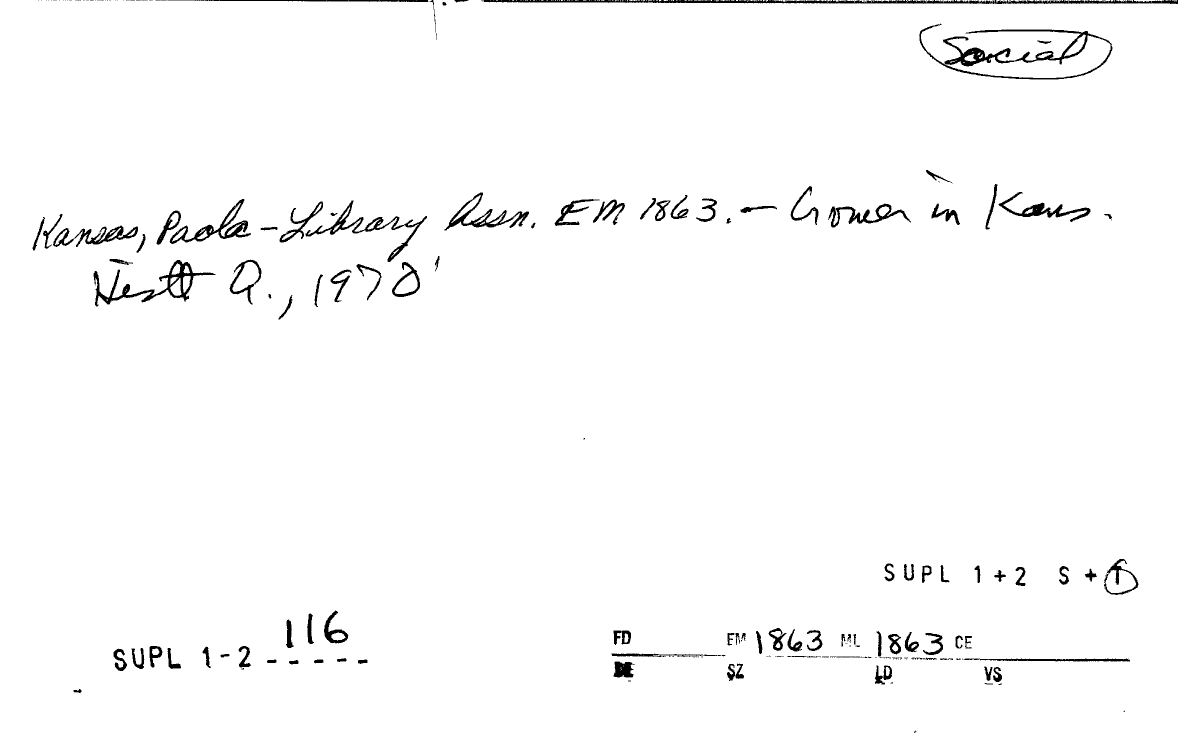 Social
Kansas, Paola - Library Assn. EM 1863. - in Kans.
Q., 1970
SUPL 1+2 S+T
116
SUPL 1-2 -----
FD EM 1863 ML 1863 CE
SZ LD VS